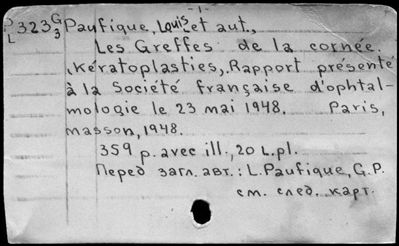 -1-
P 323 G Paufique, Louis et aut.,
L 3
Les Greffes de la cornée.
(Kératoplasties). Rapport présenté
à la Société française d'ophtal-
mologie le 23 mai 1948. Paris,
Masson, 1948.
359 p. avec ill., 20 L. pl.
Перед загл. авт.: L. Paufique, G. P.
см. след. карт.